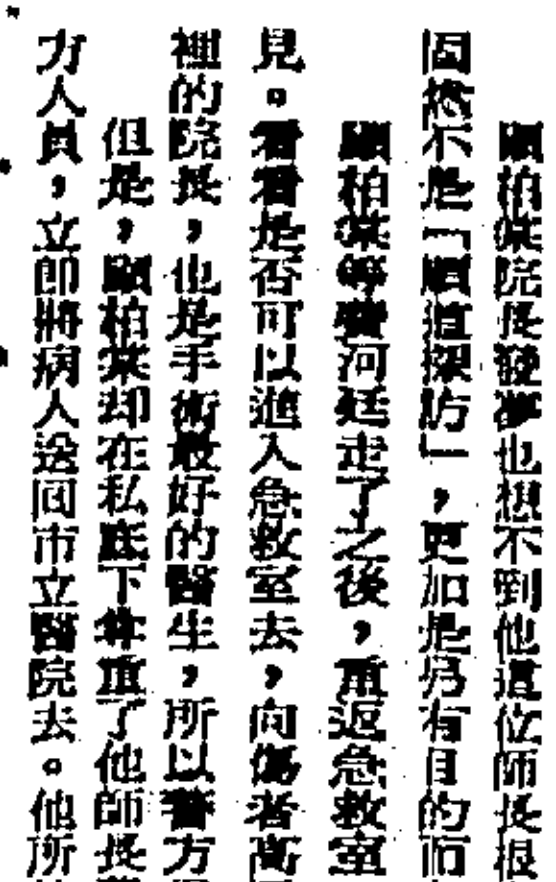 顧柏棠院長發夢也想不到他這位師長根
固然不是「順道探訪」，更加是另有目的而
顧柏棠等費河廷走了之後，重返急救室
見。看看是否可以進入急救室去，向傷者高
裡的院長，也是手術最好的醫生，所以警方
但是，顧柏棠却在私底下尊重了他師長
力人員，立即將病人送回市立醫院去。他所